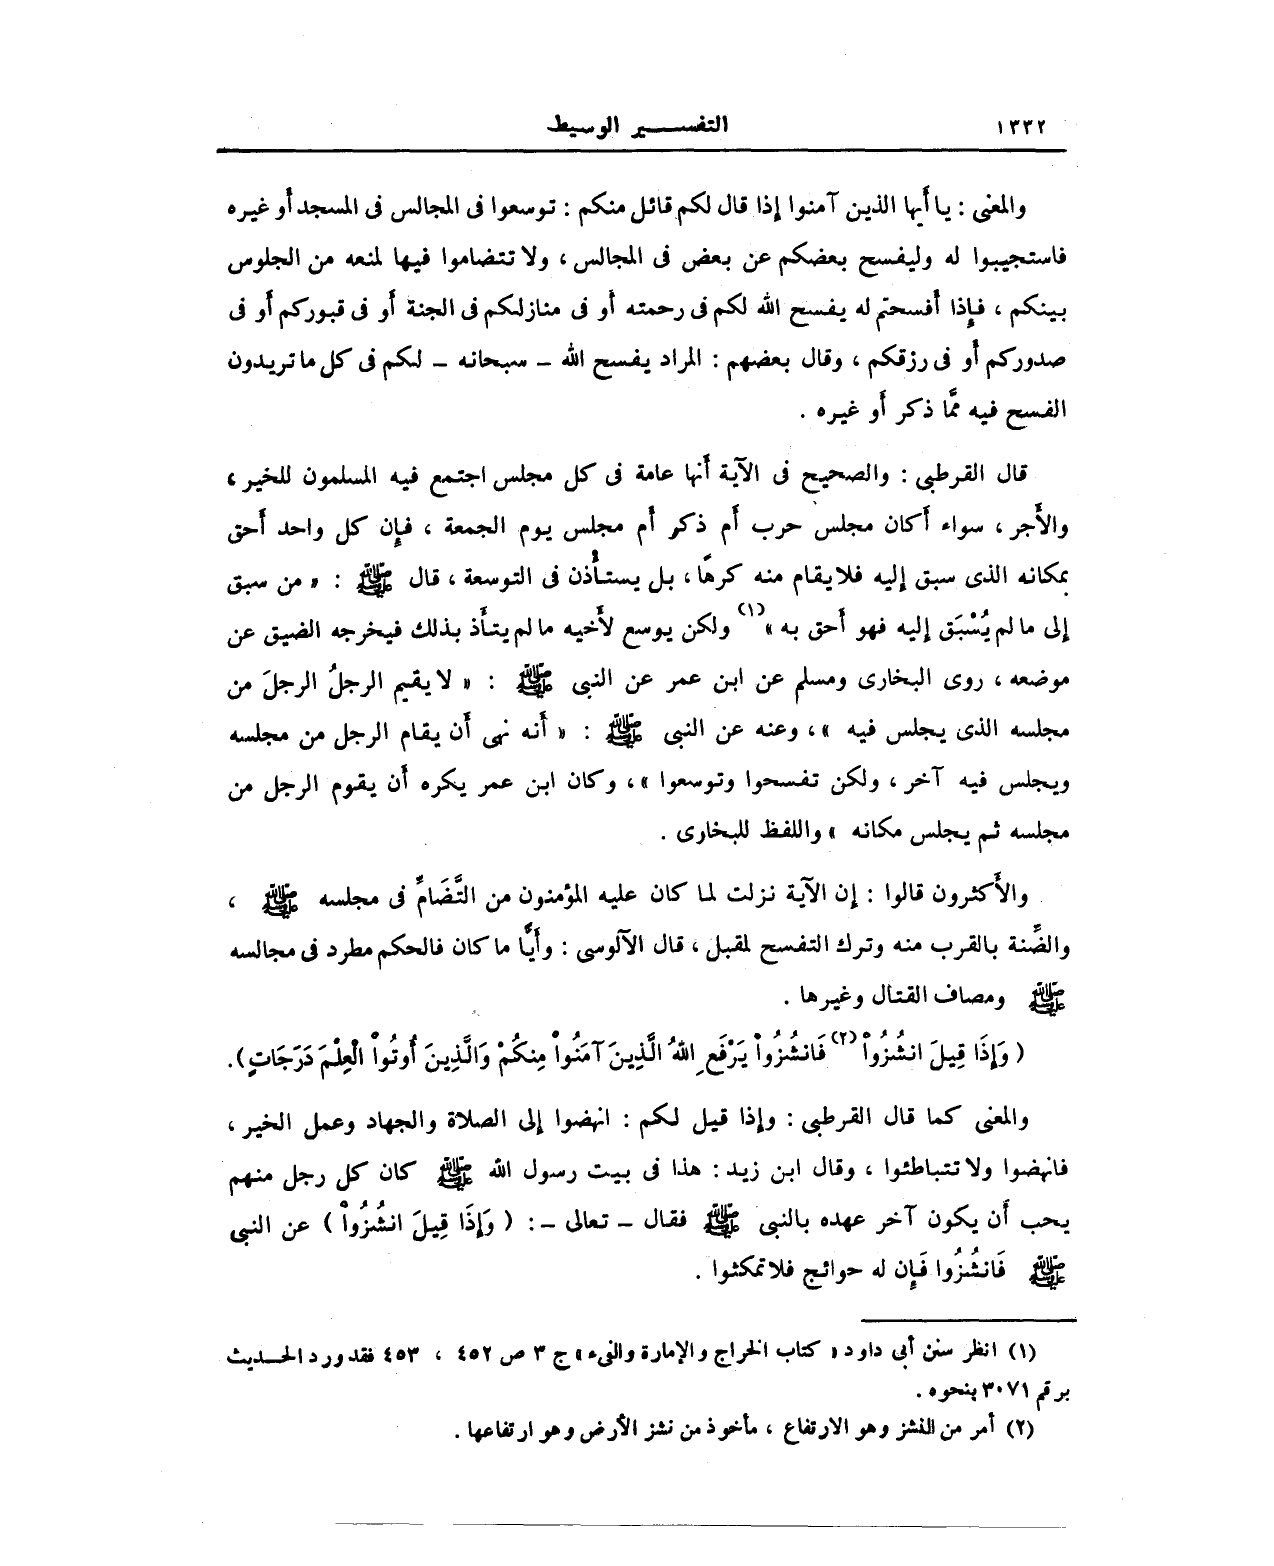 ١٣٣٢ التفسير الوسيط
والمعنى : يا أيها الذين آمنوا إذا قال لكم قائل منكم : توسعوا فى المجالس فى المسجد أو غيره
فاستجيبوا له وليفسح بعضكم عن بعض فى المجالس ، ولا تتضاموا فيها لمنعه من الجلوس
بينكم ، فإذا أفسحتم له يفسح الله لكم فى رحمته أو فى منازلكم فى الجنة أو فى قبوركم أو فى
صدوركم أو فى رزقكم ، وقال بعضهم : المراد يفسح الله – سبحانه – لكم فى كل ما تريدون
الفسح فيه ممَّا ذكر أو غيره .
قال القرطبى : والصحيح فى الآية أنها عامة فى كل مجلس اجتمع فيه المسلمون للخير ،
والأجر ، سواء أكان مجلس حرب أم ذكر أم مجلس يوم الجمعة ، فإن كل واحد أحق
بمكانه الذى سبق إليه فلا يقام منه كرهًا ، بل يستأذن فى التوسعة ، قال ﷺ : « من سبق
إلى ما لم يُسْبَق إليه فهو أحق به »(١) ولكن يوسع لأخيه ما لم يتأذ بذلك فيخرجه الضيق عن
موضعه ، روى البخارى ومسلم عن ابن عمر عن النبى ﷺ : « لا يقيم الرجلُ الرجلَ من
مجلسه الذى يجلس فيه » ، وعنه عن النبى ﷺ : « أنه نهى أن يقام الرجل من مجلسه
ويجلس فيه آخر ، ولكن تفسحوا وتوسعوا » ، وكان ابن عمر يكره أن يقوم الرجل من
مجلسه ثم يجلس مكانه » واللفظ للبخارى .
والأكثرون قالوا : إن الآية نزلت لما كان عليه المؤمنون من التَّضَامِّ فى مجلسه ﷺ ،
والضِّنة بالقرب منه وترك التفسح لمقبل ، قال الآلوسى : وأيًّا ما كان فالحكم مطرد فى مجالسه
ﷺ ومصاف القتال وغيرها .
( وَإِذَا قِيلَ انشُزُواْ(٢) فَانشُزُواْ يَرْفَعِ اللهُ الَّذِينَ آمَنُواْ مِنكُمْ وَالَّذِينَ أُوتُواْ الْعِلْمَ دَرَجَاتٍ ).
والمعنى كما قال القرطبى : وإذا قيل لكم : انهضوا إلى الصلاة والجهاد وعمل الخير ،
فانهضوا ولا تتباطئوا ، وقال ابن زيد : هذا فى بيت رسول الله ﷺ كان كل رجل منهم
يحب أن يكون آخر عهده بالنبى ﷺ فقال – تعالى – : ( وَإِذَا قِيلَ انشُزُواْ ) عن النبى
ﷺ فَانشُزُوا فَإِن له حوائج فلا تمكثوا .
(١) انظر سنن أبى داود « كتاب الخراج والإمارة والفىء » ج ٣ ص ٤٥٢ ، ٤٥٣ فقد ورد الحديث
برقم ٣٠٧١ بنحوه .
(٢) أمر من النشز وهو الارتفاع ، مأخوذ من نشز الأرض وهو ارتفاعها .